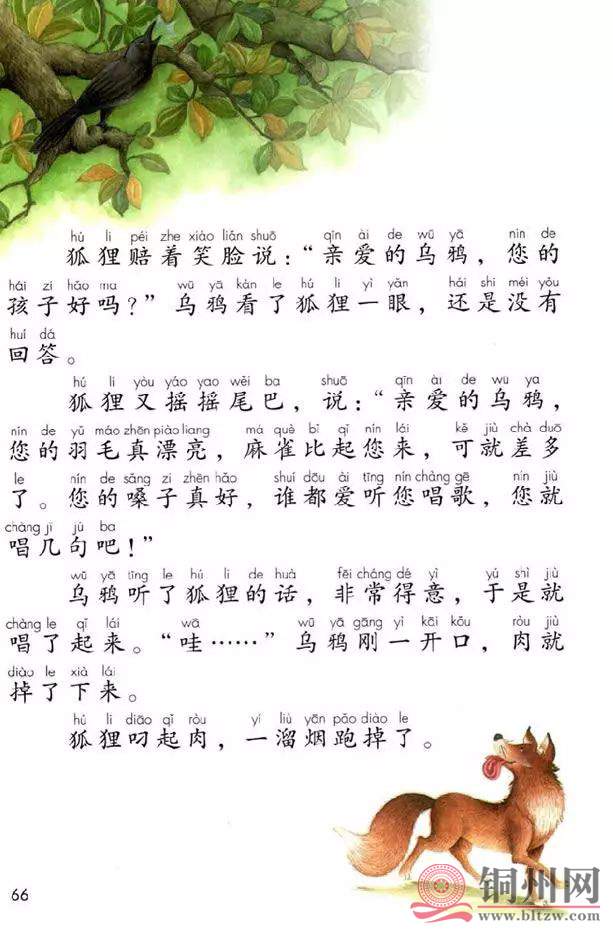 hú li péi zhe xiào liǎn shuō qīn ài de wū yā nín de
狐狸赔着笑脸说：“亲爱的乌鸦，您的
hái zi hǎo ma wū yā kàn le hú li yì yǎn hái shi méi yǒu
孩子好吗？”乌鸦看了狐狸一眼，还是没有
huí dá
回答。
hú li yòu yáo yao wěi ba shuō qīn ài de wū yā
狐狸又摇摇尾巴，说：“亲爱的乌鸦，
nín de yǔ máo zhēn piào liang má què bǐ qǐ nín lái kě jiù chà duō
您的羽毛真漂亮，麻雀比起您来，可就差多
le nín de sǎng zi zhēn hǎo shuí dōu ài tīng nín chàng gē nín jiù
了。您的嗓子真好，谁都爱听您唱歌，您就
chàng jǐ jù ba
唱几句吧！”
wū yā tīng le hú li de huà fēi cháng dé yì yú shì jiù
乌鸦听了狐狸的话，非常得意，于是就
chàng le qǐ lái wā wū yā gāng yì kāi kǒu ròu jiù
唱了起来。“哇……”乌鸦刚一开口，肉就
diào le xià lái
掉了下来。
hú li diāo qǐ ròu yí liù yān pǎo diào le
狐狸叼起肉，一溜烟跑掉了。
66
铜州网
www.bltzw.com